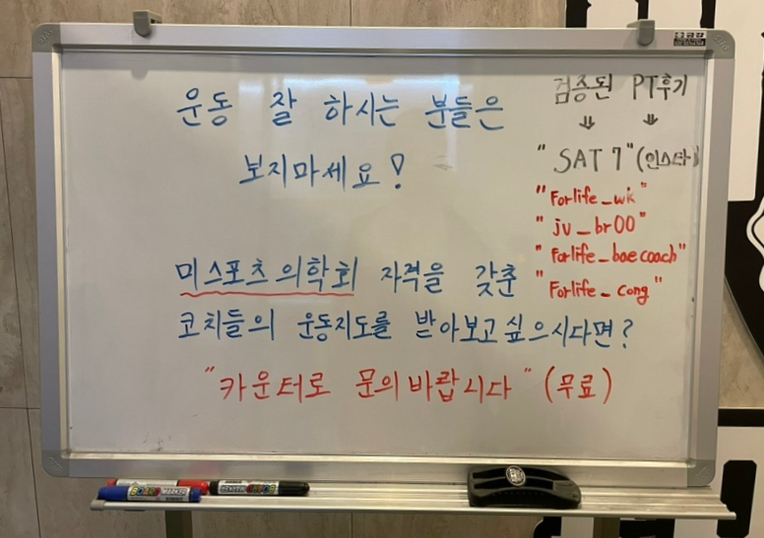 운동 잘 하시는 분들은
보지마세요!
미스포츠의학회 자격을 갖춘
코치들의 운동지도를 받아보고싶으시다면?
"카운터로 문의바랍니다" (무료)
검증된 PT후기
⇓ ⇓
"SAT 7" (인스타)
"Forlife_wk"
"jv_br00"
"Forlife_baecoach"
"Forlife_cong"